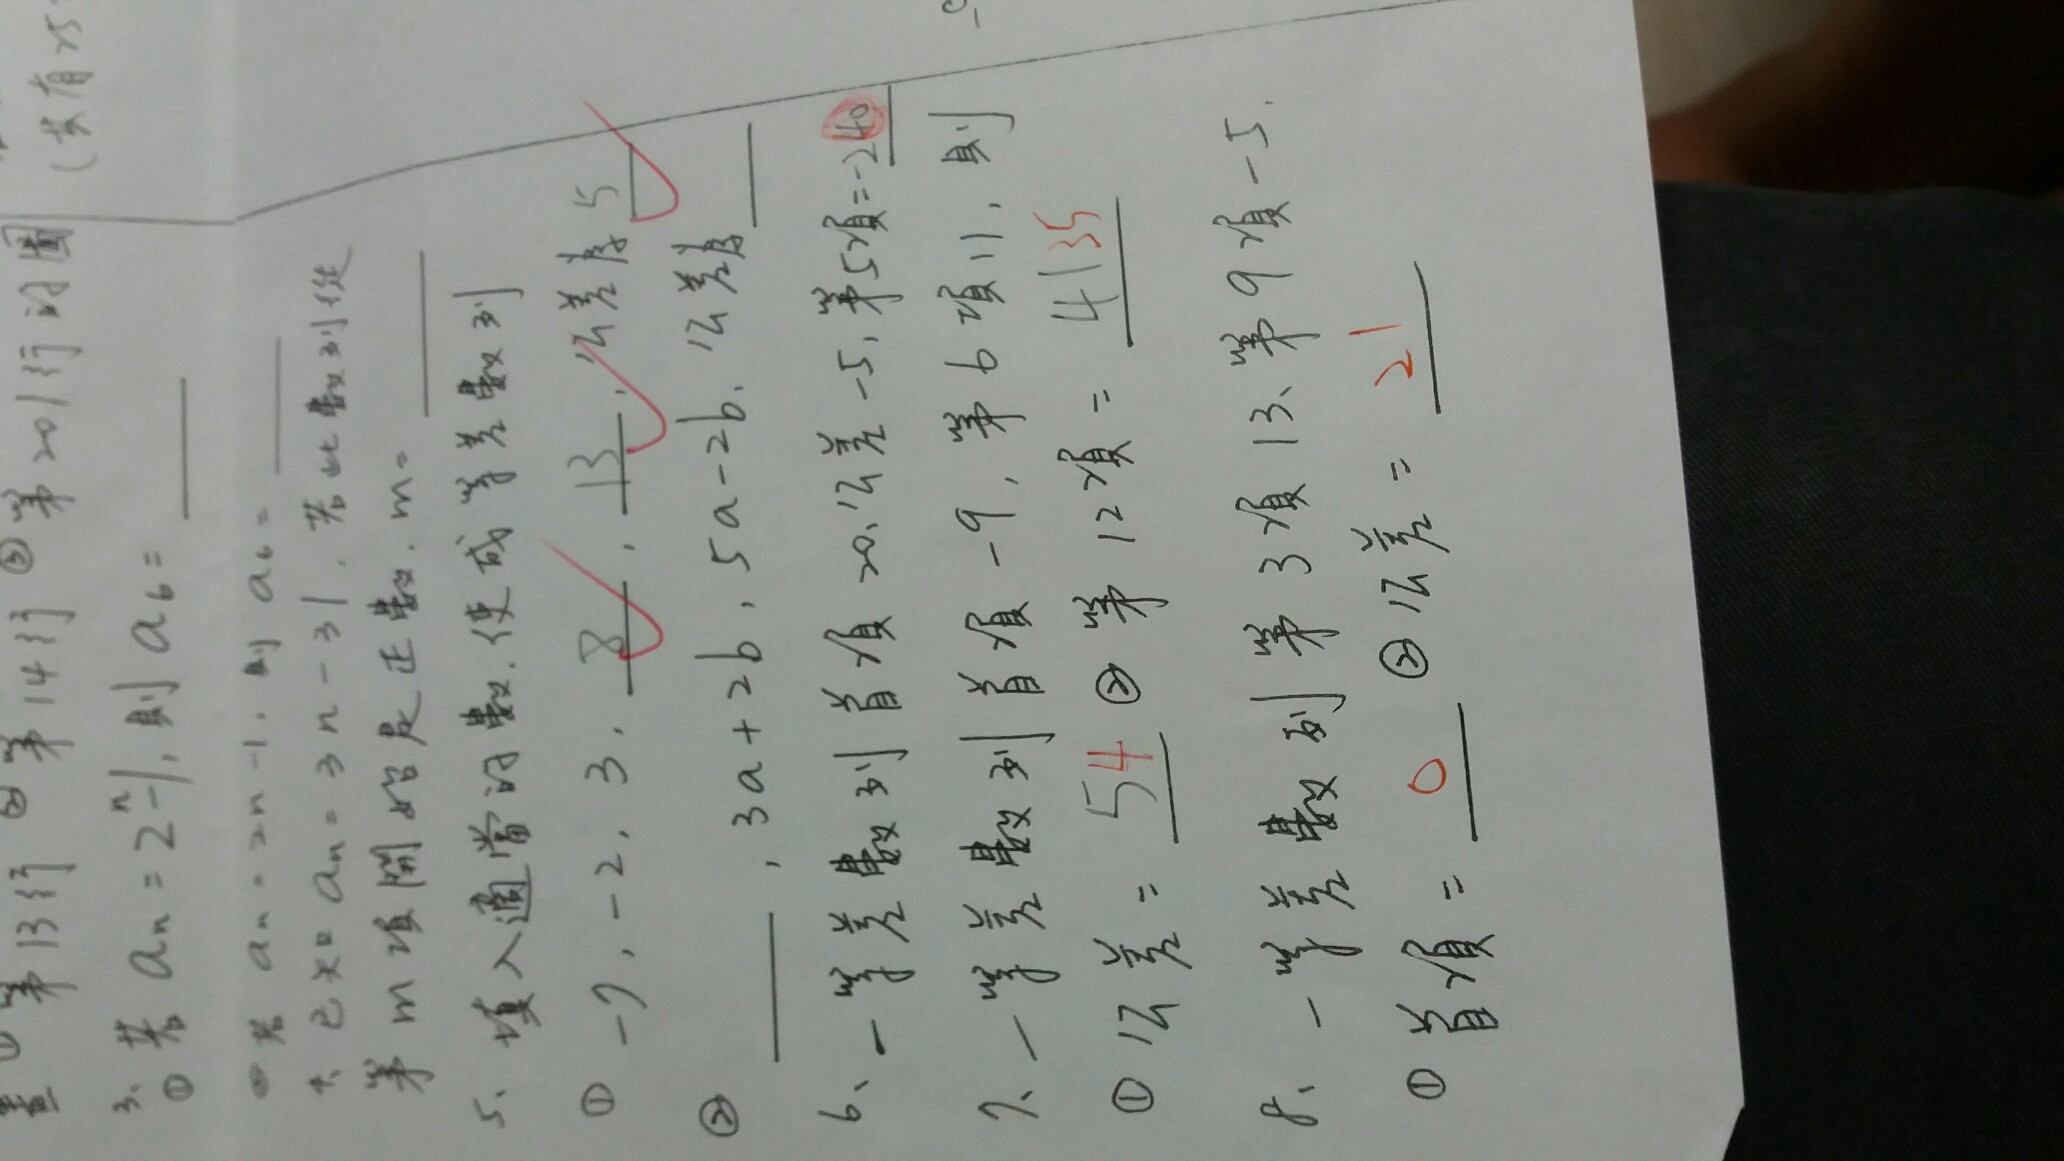 (共有25
畫 ① 第13行 ② 第14行 ③ 第20行的圖
3、① 若 aₙ = 2ⁿ-1, 則 a₆ =
② 若 aₙ = 2n-1, 則 a₆ =
4、已知 aₙ = 3n-31, 若此數列從
第 m 項開始是正數, m=
5、填入適當的數, 使成等差數列
① -7, -2, 3, 8, 13, 公差為 5
② , 3a+2b, 5a-2b, 公差為
6、一等差數列首項 20, 公差 -5, 第5項=-240
7、一等差數列首項 -9, 第6項11, 則
① 公差 = 54 ② 第12項 = 4135
8、一等差數列第3項13、第9項-5.
① 首項 = 0 ② 公差 = 21